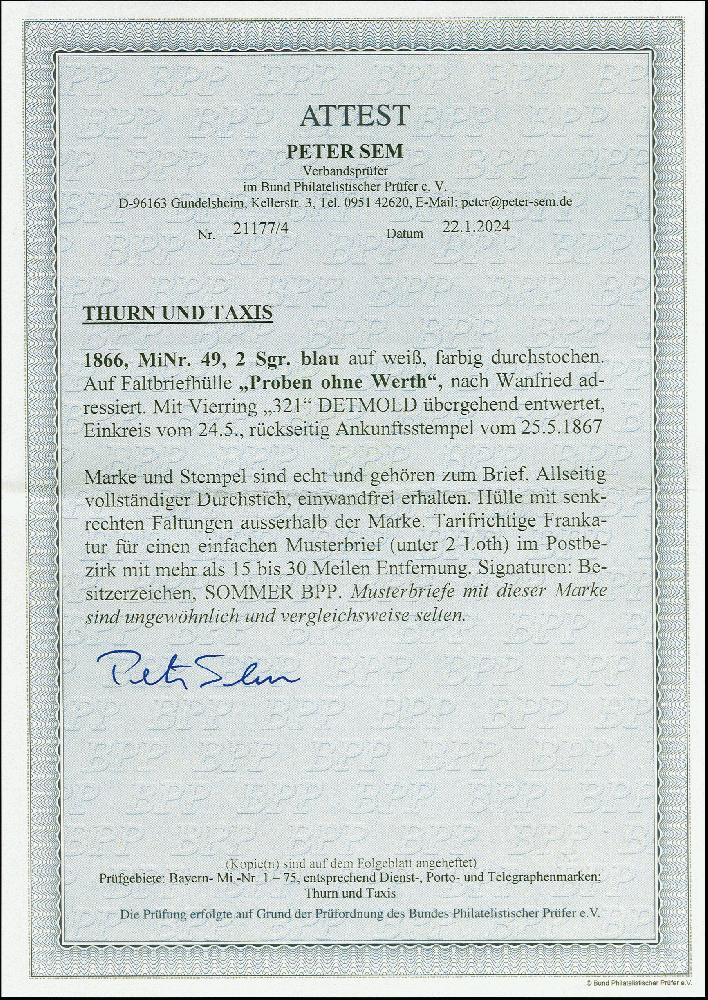 ATTEST
PETER SEM
Verbandsprüfer
im Bund Philatelistischer Prüfer e. V.
D-96163 Gundelsheim, Kellerstr. 3, Tel. 0951 42620, E-Mail: peter@peter-sem.de
Nr. 21177/4 Datum 22.1.2024
THURN UND TAXIS
1866, MiNr. 49, 2 Sgr. blau auf weiß, farbig durchstochen.
Auf Faltbriefhülle „Proben ohne Werth“, nach Wanfried ad-
ressiert. Mit Vierring „321“ DETMOLD übergehend entwertet,
Einkreis vom 24.5., rückseitig Ankunftsstempel vom 25.5.1867
Marke und Stempel sind echt und gehören zum Brief. Allseitig
vollständiger Durchstich, einwandfrei erhalten. Hülle mit senk-
rechten Faltungen ausserhalb der Marke. Tarifrichtige Franka-
tur für einen einfachen Musterbrief (unter 2 Loth) im Postbe-
zirk mit mehr als 15 bis 30 Meilen Entfernung. Signaturen: Be-
sitzerzeichen, SOMMER BPP. Musterbriefe mit dieser Marke
sind ungewöhnlich und vergleichsweise selten.
Peter Sem
(Kopie(n) sind auf dem Folgeblatt angeheftet)
Prüfgebiete: Bayern- Mi.-Nr. 1 – 75, entsprechend Dienst-, Porto- und Telegraphenmarken;
Thurn und Taxis
Die Prüfung erfolgte auf Grund der Prüfordnung des Bundes Philatelistischer Prüfer e.V.
© Bund Philatelistischer Prüfer e.V.